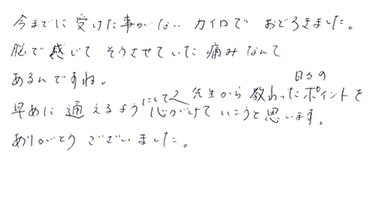 今までに受けた事がない カイロで おどろきました。
脳で感じて そうさせていた 痛みなんて
あるんですね。
早めに通えるようにして 先生から教わった日々のポイントを
心がけていこうと思います。
ありがとう ございました。